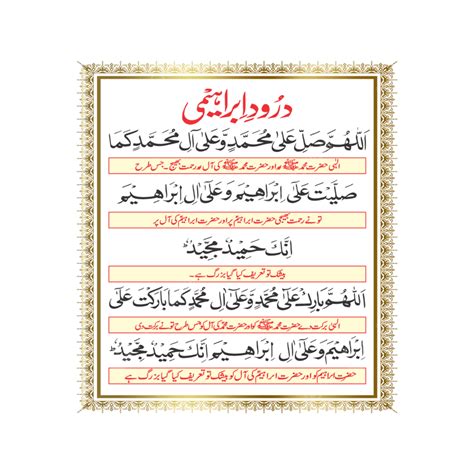 درود ابراہیمی
اَللّٰهُمَّ صَلِّ عَلٰى مُحَمَّدٍ وَّعَلٰى اٰلِ مُحَمَّدٍ كَمَا
الٰہی حضرت محمد ﷺ اور حضرت محمد ﷺ کی آل پر رحمت بھیج۔ جس طرح
صَلَّيْتَ عَلٰى اِبْرَاهِيْمَ وَعَلٰى اٰلِ اِبْرَاهِيْمَ
تو نے رحمت بھیجی حضرت ابراہیمؑ پر اور حضرت ابراہیمؑ کی آل پر
اِنَّكَ حَمِيْدٌ مَّجِيْدٌ ط
بیشک تو تعریف کیا گیا بزرگ ہے۔
اَللّٰهُمَّ بَارِكْ عَلٰى مُحَمَّدٍ وَّعَلٰى اٰلِ مُحَمَّدٍ كَمَا بَارَكْتَ عَلٰى
الٰہی برکت دے حضرت محمد ﷺ کو اور حضرت محمد کی آل کو جس طرح تو نے برکت دی
اِبْرَاهِيْمَ وَعَلٰى اٰلِ اِبْرَاهِيْمَ اِنَّكَ حَمِيْدٌ مَّجِيْدٌ ط
حضرت ابراہیم کو اور حضرت ابراہیمؑ کی آل کو بیشک تو تعریف کیا گیا بزرگ ہے